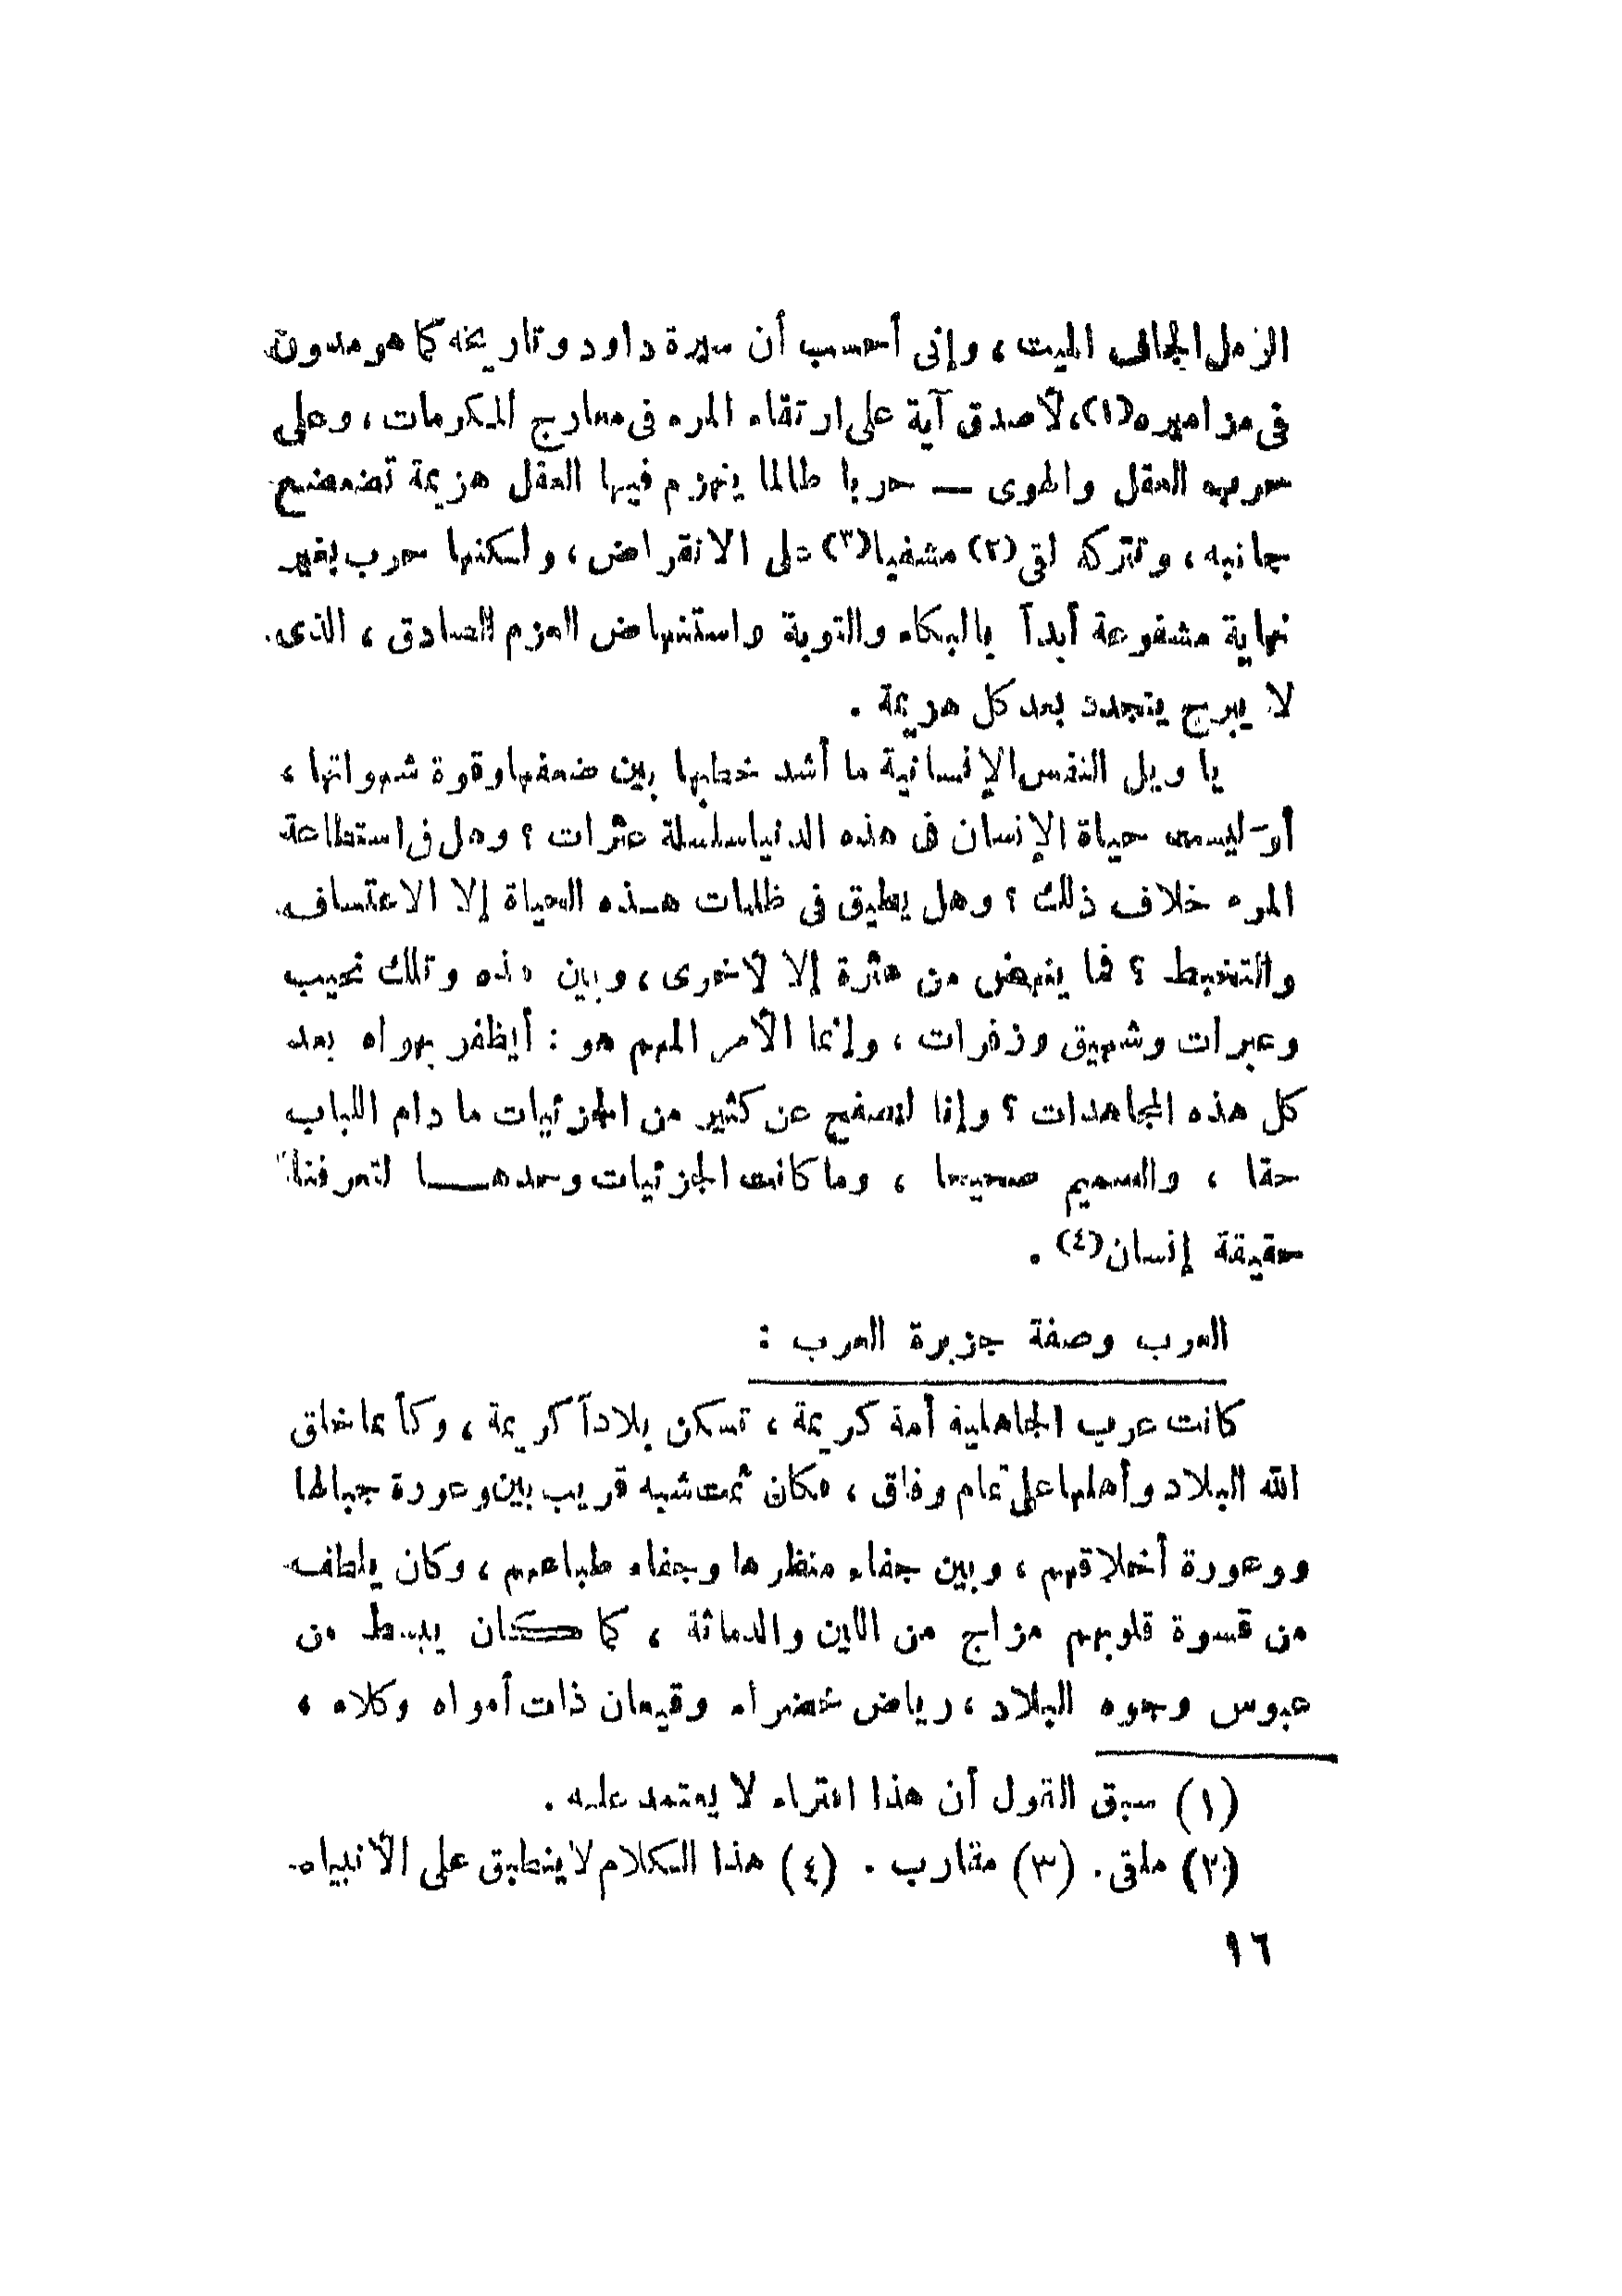 الرمل الجاف الميت ، وإنى أحسب أن سيرة داود وتاريخه كما هو مدون
فى مزاميره (١) ، لأصدق آية على ارتقاء المرء فى معارج المكرمات ، وعلى
حرب العقل والهوى — حربا طالما ينهزم فيها العقل هزيمة تضعضع
جانبه ، وتتركه لقى (٢) مشفيا (٣) على الانقراض ، ولكنها حرب بغير
نهاية مشفوعة أبداً بالبكاء والتوبة واستنهاض العزم الصادق ، الذى
لا يبرح يتجدد بعد كل هزيمة .
يا ويل النفس الإنسانية ما أشد خطبها بين ضعفها وقوة شهواتها ،
أوَ ليست حياة الإنسان فى هذه الدنيا سلسلة عثرات ؟ وهل فى استطاعة
المرء خلاف ذلك ؟ وهل يطيق فى ظلمات هذه الحياة إلا الاعتساف
والتخبط ؟ فما ينهض من عثرة إلا لأخرى ، وبين هذه وتلك نحيب
وعبرات وشهيق وزفرات ، وإنما الأمر المهم هو : أيظفر بهواه بعد
كل هذه المجاهدات ؟ وإنا لنصفح عن كثير من الجزئيات ما دام اللباب
حقا ، والصميم صحيحا ، وما كانت الجزئيات وحدها لتعرفنا
حقيقة إنسان (٤) .
العرب وصفة جزيرة العرب :
كانت عرب الجاهلية أمة كريمة ، تسكن بلاداً كريمة ، وكأنما خلق
الله البلاد وأهلها على تمام وفاق ، فكان ثمت شبه قريب بين وعورة جبالها
ووعورة أخلاقهم ، وبين جفاء منظرها وجفاء طباعهم ، وكان يلطف
من قسوة قلوبهم مزاج من اللين والدماثة ، كما كان يبسط من
عبوس وجوه البلاد ، رياض خضراء وقيعان ذات أمواه وكلاء ،
(١) سبق القول أن هذا افتراء لا يعتمد عليه .
(٢) ملقى . (٣) مقارب . (٤) هذا الكلام لا ينطبق على الأنبياء
١٦